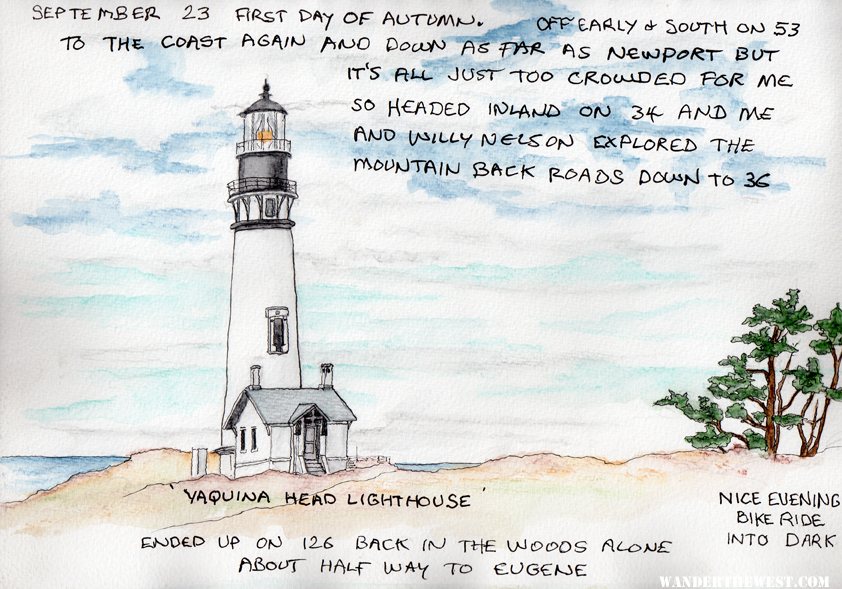 SEPTEMBER 23 FIRST DAY OF AUTUMN. OFF EARLY & SOUTH ON 53
TO THE COAST AGAIN AND DOWN AS FAR AS NEWPORT BUT
IT'S ALL JUST TOO CROWDED FOR ME
SO HEADED INLAND ON 34 AND ME
AND WILLY NELSON EXPLORED THE
MOUNTAIN BACK ROADS DOWN TO 36
'YAQUINA HEAD LIGHTHOUSE'
NICE EVENING
BIKE RIDE
INTO DARK
ENDED UP ON 126 BACK IN THE WOODS ALONE
ABOUT HALF WAY TO EUGENE
WANDERTHEWEST.COM